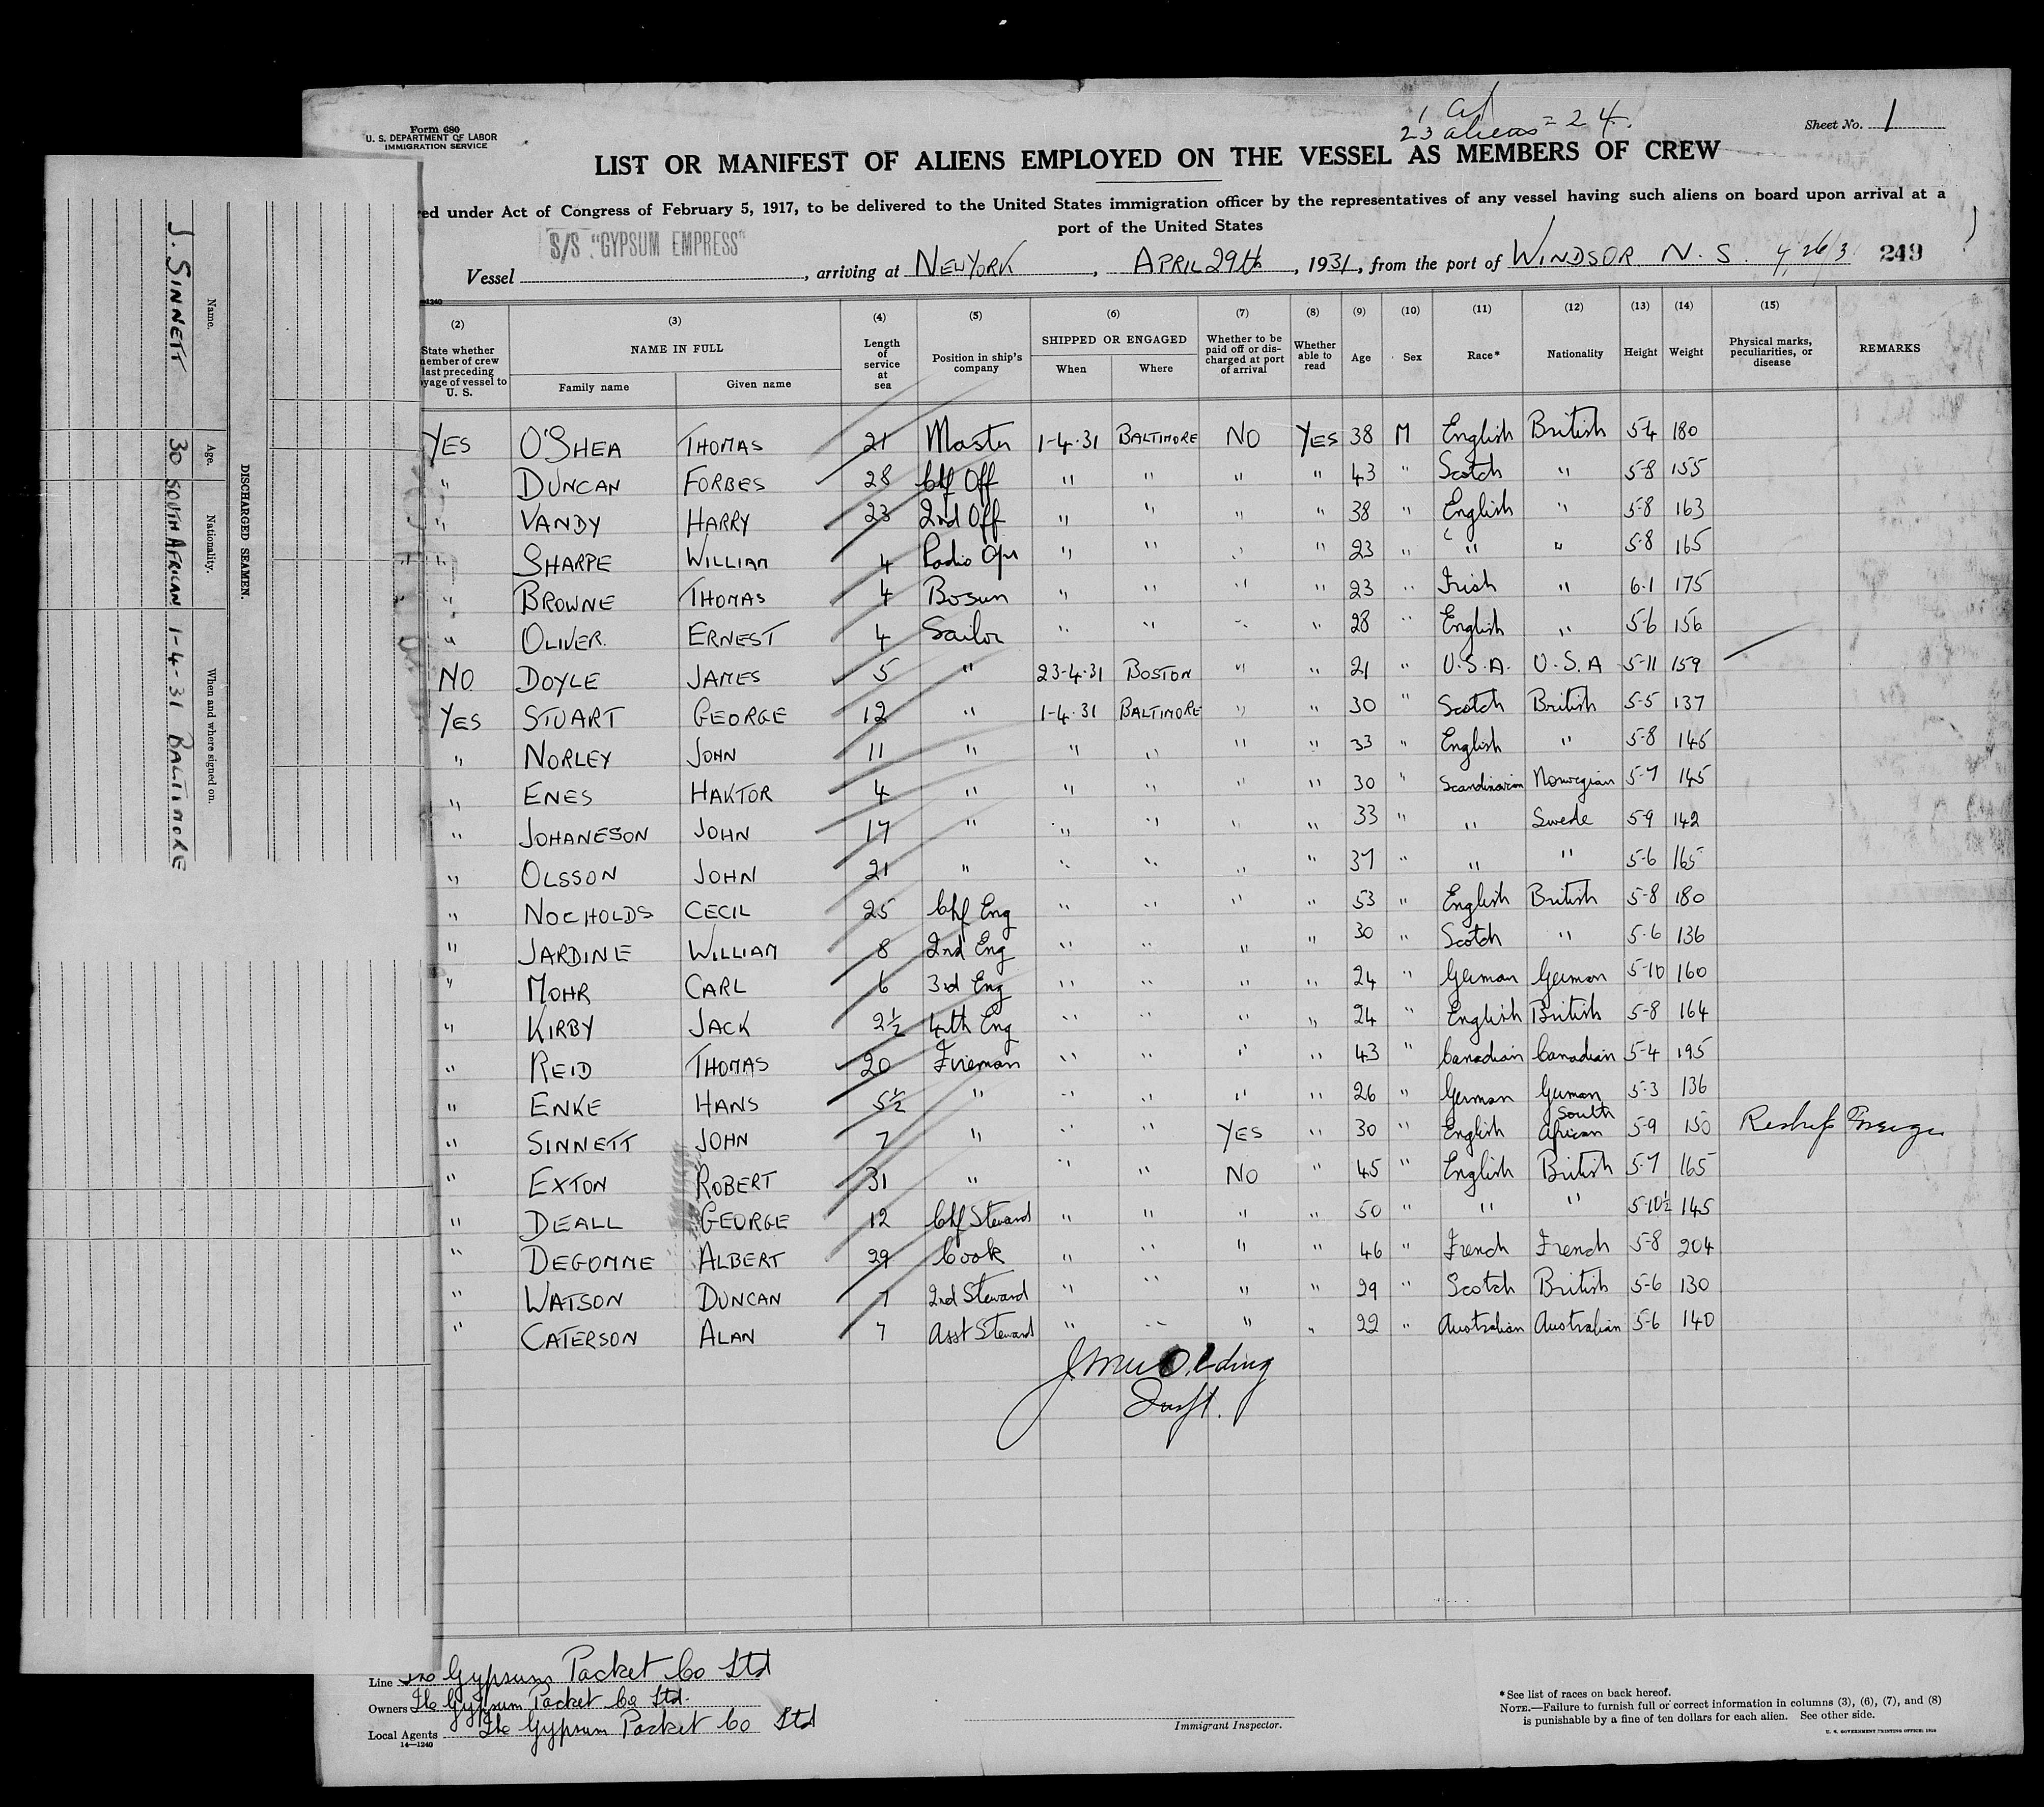 1 
23 aliens = 24.
Form 680
U. S. DEPARTMENT OF LABOR
IMMIGRATION SERVICE
Sheet No. 1
LIST OR MANIFEST OF ALIENS EMPLOYED ON THE VESSEL AS MEMBERS OF CREW
red under Act of Congress of February 5, 1917, to be delivered to the United States immigration officer by the representatives of any vessel having such aliens on board upon arrival at a
port of the United States
Vessel S/S "GYPSUM EMPRESS", arriving at NEW YORK, APRIL 29th, 1931, from the port of WINDSOR N. S. 249
(2) (3) (4) (5) (6) (7) (8) (9) (10) (11) (12) (13) (14) (15)
State whether member of crew last preceding voyage of vessel to U. S. NAME IN FULL Family name Given name Length of service at sea Position in ship's company SHIPPED OR ENGAGED When Where Whether to be paid off or discharged at port of arrival Whether able to read Age Sex Race* Nationality Height Weight Physical marks, peculiarities, or disease REMARKS
YES O'SHEA THOMAS 21 Master 1-4-31 BALTIMORE NO YES 38 M English British 5-4 180
" DUNCAN FORBES 28 Chf Off " " " " 43 " Scotch " 5-8 155
" VANDY HARRY 23 2nd Off " " " " 38 " English " 5-8 163
" SHARPE WILLIAM 4 Radio Opr " " " " 23 " " " 5-8 165
" BROWNE THOMAS 4 Bosun " " " " 23 " Irish " 6-1 175
" OLIVER. ERNEST 4 Sailor " " " " 28 " English " 5-6 156
NO DOYLE JAMES 5 " 23-4-31 BOSTON " " 21 " U.S.A. U.S.A 5-11 159
YES STUART GEORGE 12 " 1-4-31 BALTIMORE " " 30 " Scotch British 5-5 137
" NORLEY JOHN 11 " " " " " 33 " English " 5-8 145
" ENES HAKTOR 4 " " " " " 30 " Scandinavian Norwegian 5-7 145
" JOHANESON JOHN 17 " " " " " 33 " " Swede 5-9 142
" OLSSON JOHN 21 " " " " " 37 " " " 5-6 165
" NOCHOLDS CECIL 25 Chf Eng " " " " 53 " English British 5-8 180
" JARDINE WILLIAM 8 2nd Eng " " " " 30 " Scotch " 5-6 136
" MOHR CARL 6 3rd Eng " " " " 24 " German German 5-10 160
" KIRBY JACK 2½ 4th Eng " " " " 24 " English British 5-8 164
" REID THOMAS 20 Fireman " " " " 43 " Canadian Canadian 5-4 195
" ENKE HANS 5½ " " " " " 26 " German German 5-3 136
" SINNETT JOHN 7 " " " YES " 30 " English South African 5-9 150
" EXTON ROBERT 31 " " " NO " 45 " English British 5-7 165
" DEALL GEORGE 12 Chf Steward " " " " 50 " " " 5-10½ 145
" DEGOMME ALBERT 29 Cook " " " " 46 " French French 5-8 204
" WATSON DUNCAN 7 2nd Steward " " " " 29 " Scotch British 5-6 130
" CATERSON ALAN 7 Asst Steward " " " " 22 " Australian Australian 5-6 140
Line The Gypsum Packet Co Ltd
Owners The Gypsum Packet Co Ltd.
Local Agents The Gypsum Packet Co Ltd
14—1240
Immigrant Inspector.
*See list of races on back hereof.
NOTE.—Failure to furnish full or correct information in columns (3), (6), (7), and (8)
is punishable by a fine of ten dollars for each alien. See other side.
U. S. GOVERNMENT PRINTING OFFICE: 1930
DISCHARGED SEAMEN.
Name. Age. Nationality. When and where signed on.
J. SINNETT 30 SOUTH AFRICAN 1-4-31 BALTIMORE